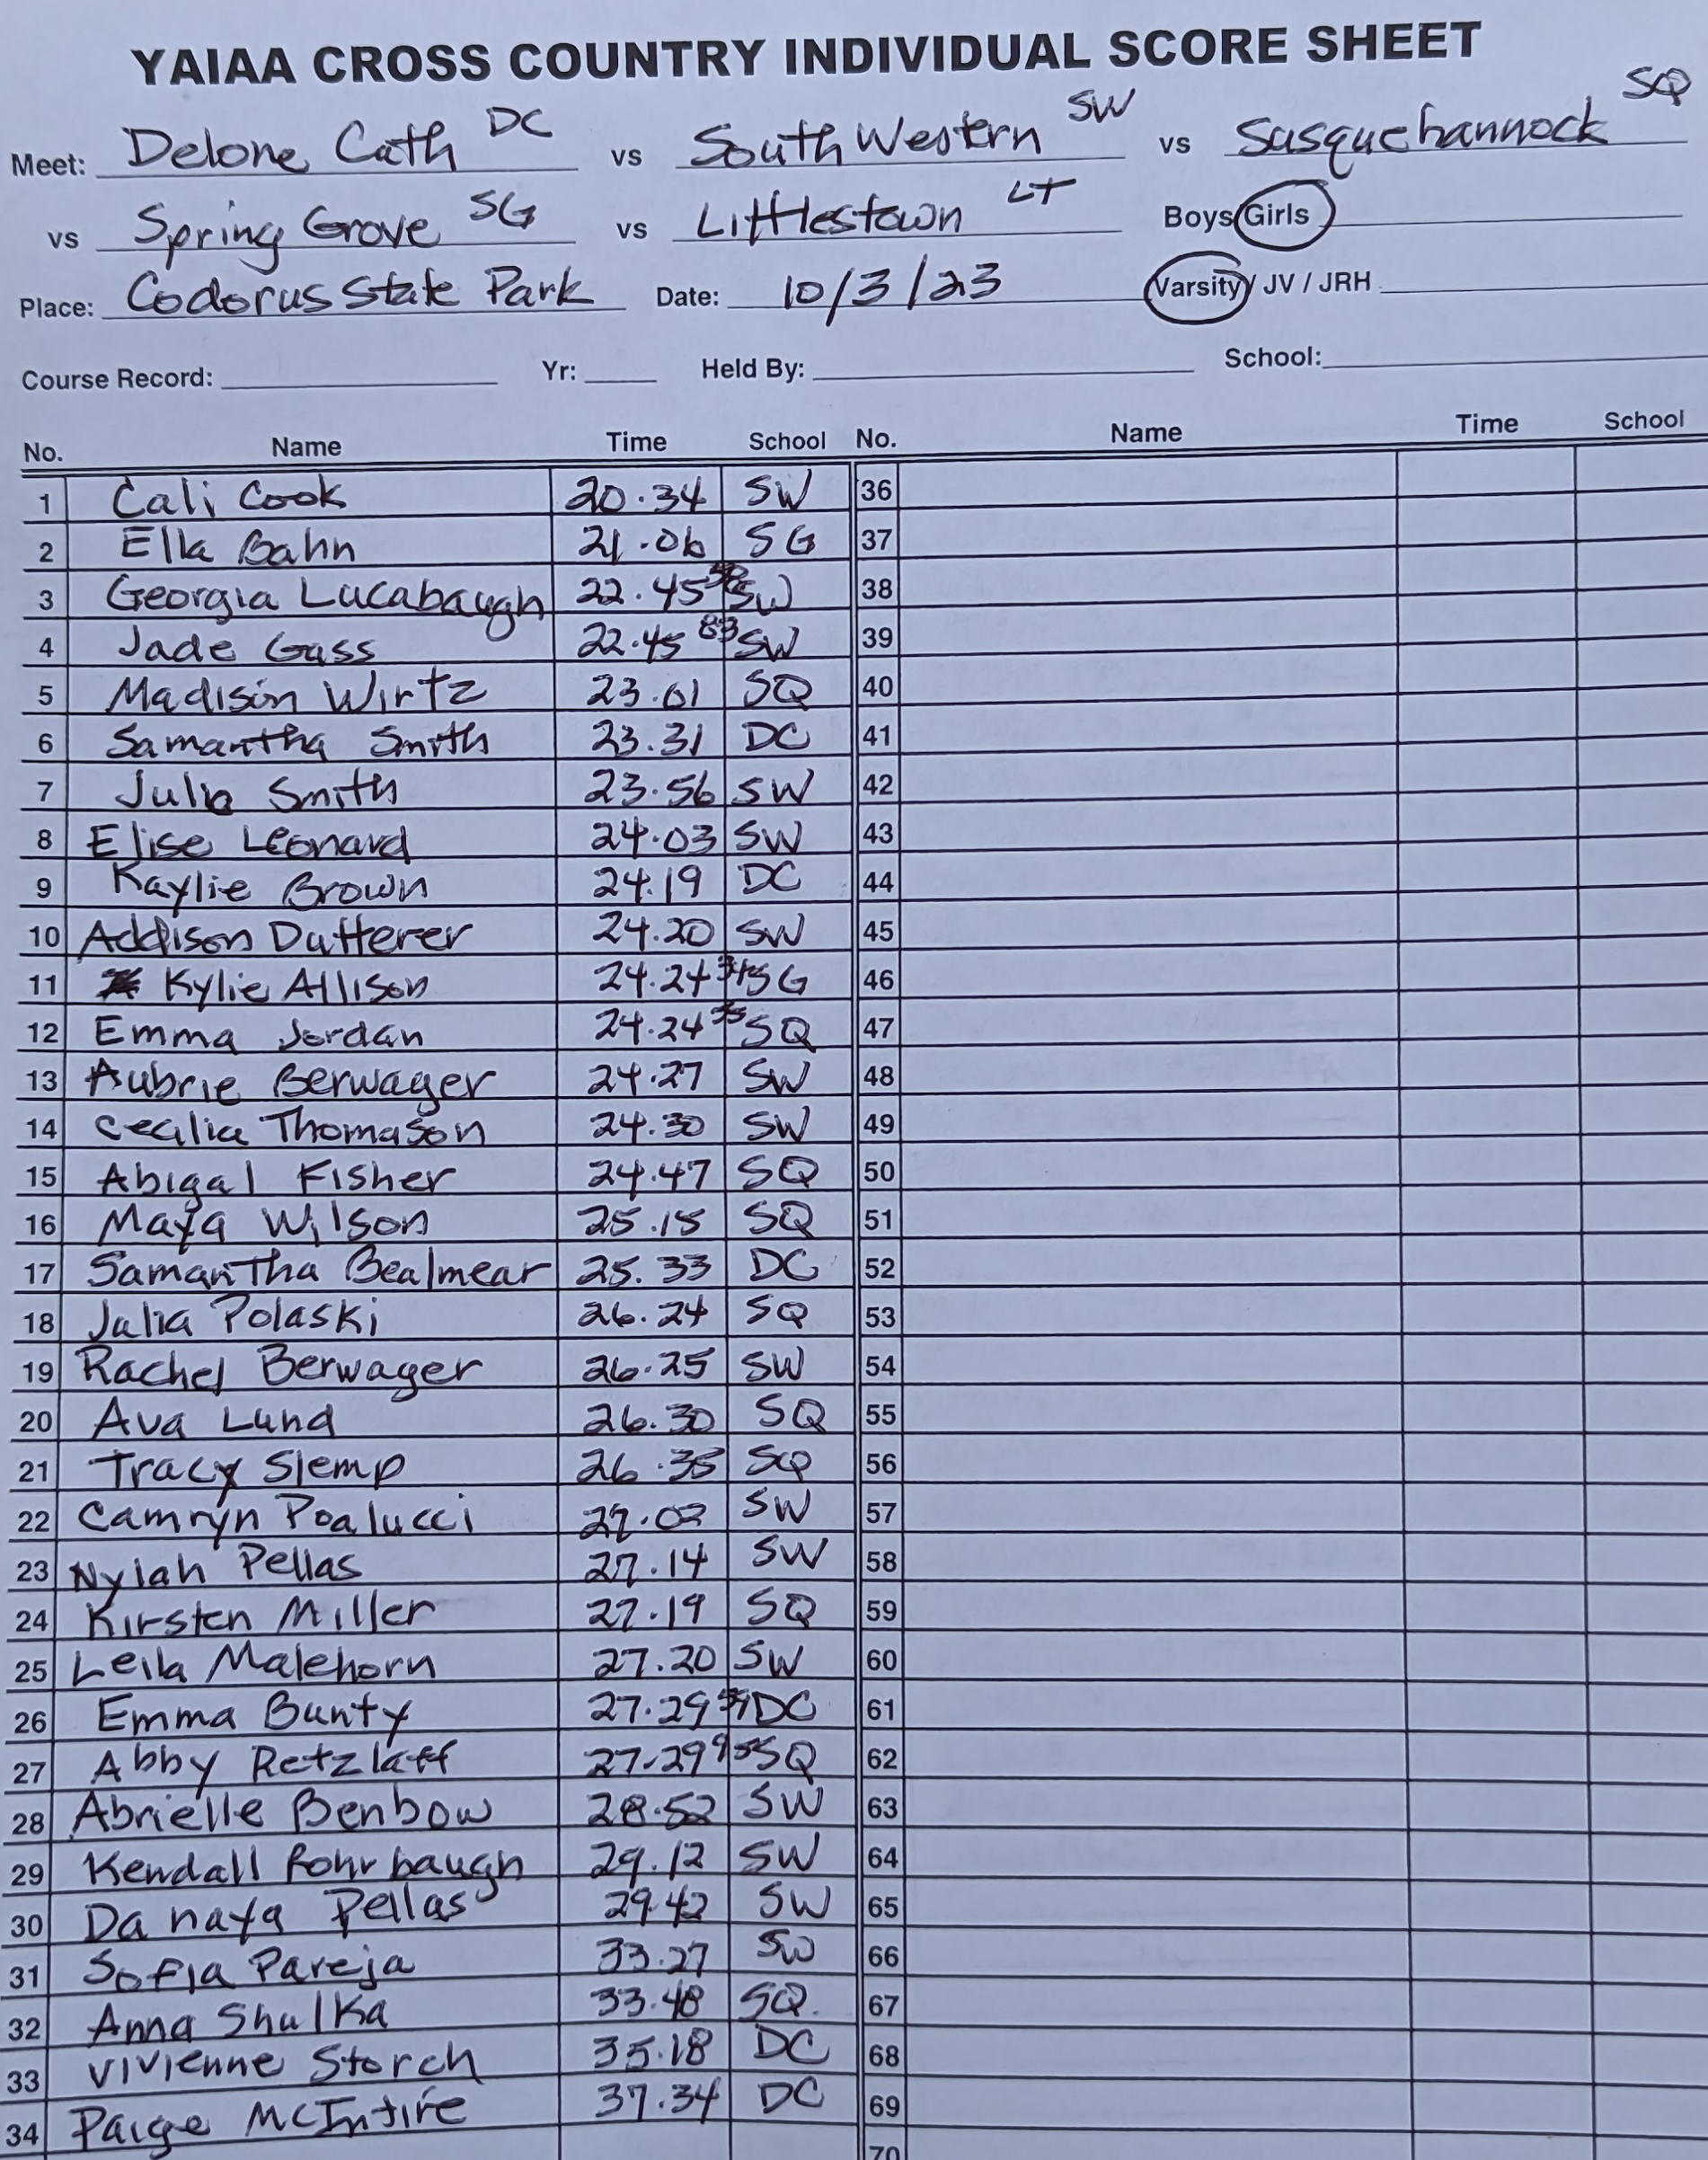 YAIAA CROSS COUNTRY INDIVIDUAL SCORE SHEET
Meet: Delone Cath DC vs South Western SW vs Susquehannock SQ
vs Spring Grove SG vs Littlestown LT Boys/Girls
Place: Codorus State Park Date: 10/3/23 Varsity / JV / JRH
Course Record: Yr: Held By: School:
No. Name Time School No. Name Time School
1 Cali Cook 20.34 SW 36
2 Ella Bahn 21.06 SG 37
3 Georgia Lucabaugh 22.45 SW 38
4 Jade Gass 22.45 83 SW 39
5 Madison Wirtz 23.01 SQ 40
6 Samantha Smith 23.31 DC 41
7 Julia Smith 23.56 SW 42
8 Elise Leonard 24.03 SW 43
9 Kaylie Brown 24.19 DC 44
10 Addison Dutterer 24.20 SW 45
11 Kylie Allison 24.24 SG 46
12 Emma Jordan 24.24 SQ 47
13 Aubrie Berwager 24.27 SW 48
14 Cecilia Thomason 24.30 SW 49
15 Abigal Fisher 24.47 SQ 50
16 Maya Wilson 25.15 SQ 51
17 Samantha Bealmear 25.33 DC 52
18 Julia Polaski 26.24 SQ 53
19 Rachel Berwager 26.25 SW 54
20 Ava Lund 26.30 SQ 55
21 Tracy Slemp 26.35 SQ 56
22 Camryn Poalucci 27.02 SW 57
23 Nylah Pellas 27.14 SW 58
24 Kirsten Miller 27.19 SQ 59
25 Leila Malehorn 27.20 SW 60
26 Emma Bunty 27.29 DC 61
27 Abby Retzlaff 27.29 SQ 62
28 Abrielle Benbow 28.52 SW 63
29 Kendall Rohrbaugh 29.12 SW 64
30 Danaya Pellas 29.42 SW 65
31 Sofia Pareja 33.27 SW 66
32 Anna Shulka 33.48 SQ. 67
33 Vivienne Storch 35.18 DC 68
34 Paige McIntire 37.34 DC 69
70